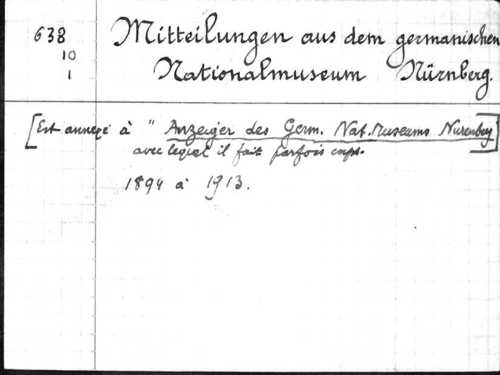 638
10
1
Mitteilungen aus dem germanischen
Nationalmuseum Nürnberg.
[Est annexé à " Anzeiger des Germ. Nat. Museums Nurenberg]
avec lequel il fait parfois corps.
1894 à 1913.